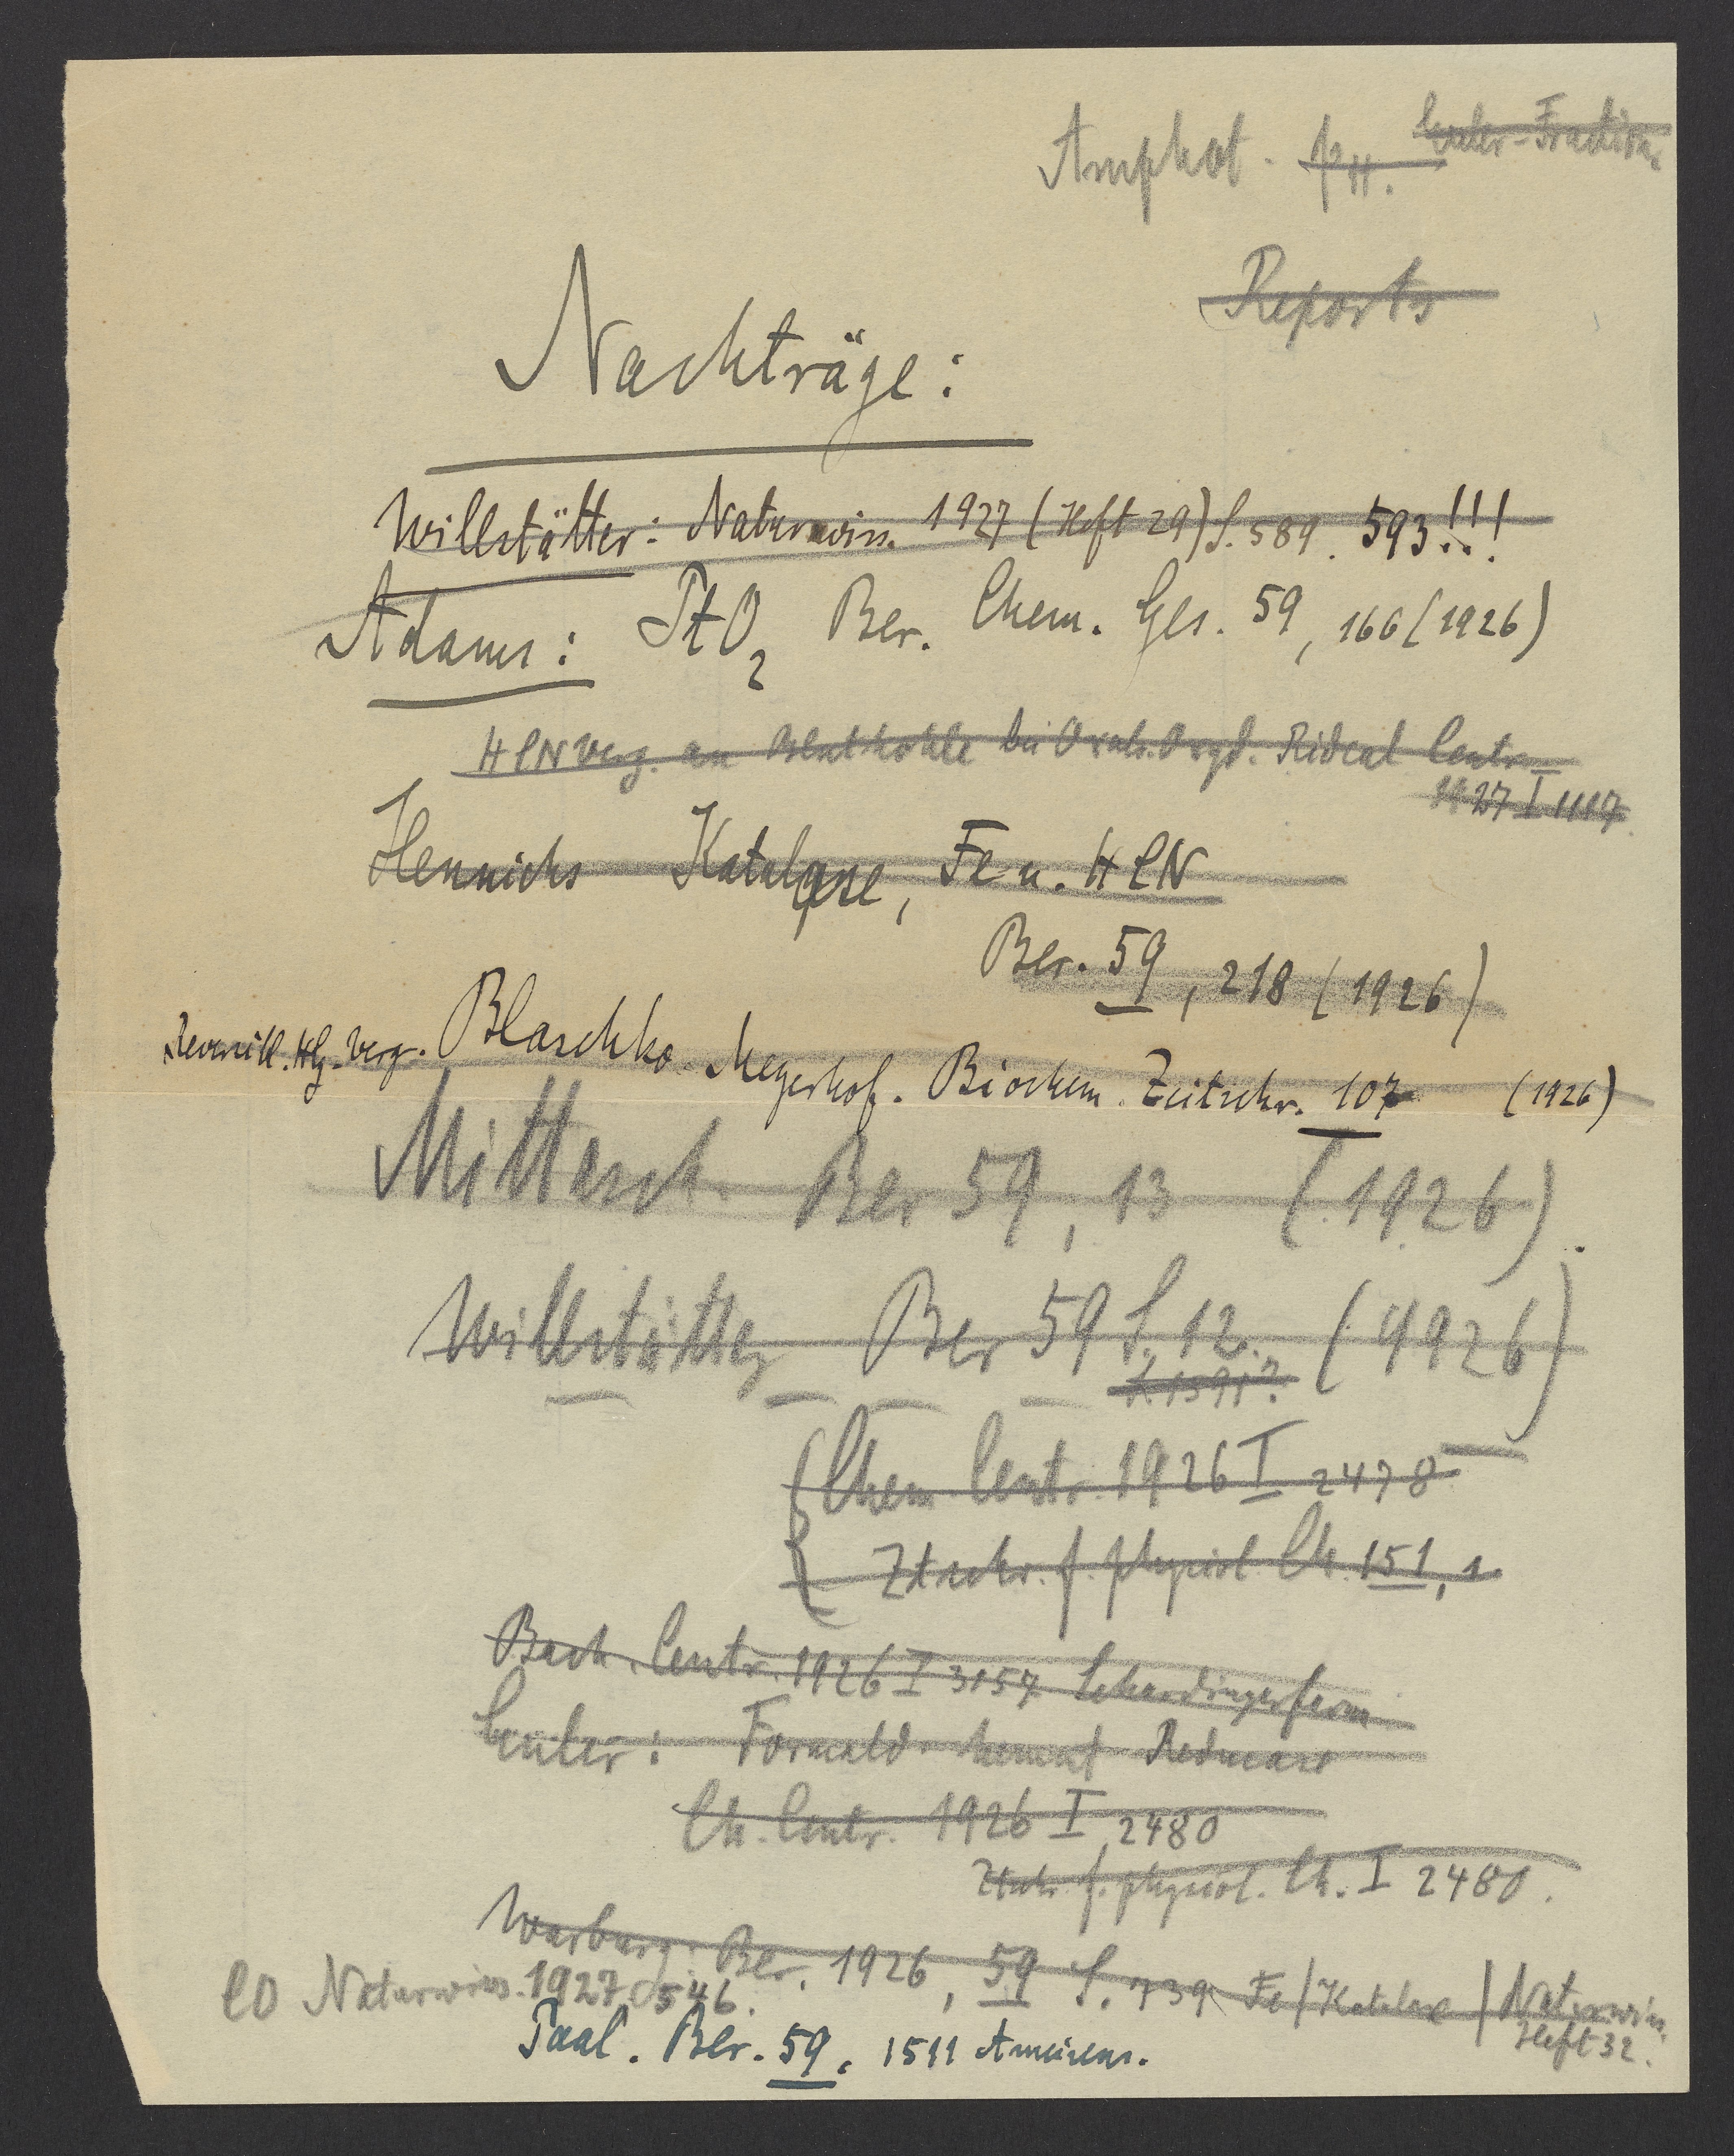 Amphot. pH. Euler-Fraktion
Reports
Nachträge:
Willstätter: Naturwiss. 1927 (Heft 29) S. 589. 593!!!
Adams: PtO2 Ber. Chem. Ges. 59, 166 (1926)
HCN Verg. an Blutkohle bei Oxals. Oxyd. Rideal Centr.
1927 I 1117
Hennichs Katalase, Fe u. HCN
Ber. 59, 218 (1926)
Hg-Verg. Blaschko Meyerhof. Biochem. Zeitschr. 107 (1926)
Mittasch. Ber 59, 13 (1926)
Willstätter Ber 59 S. 12. (1926)
S. 1591?
Chem. Centr. 1926 I 2478
Ztschr. f. physiol. Ch. 151, 1.
Bach. Centr. 1926 I 3157 Schardingerferm
Euler: Formald. hemmt Reduase
Ch. Centr. 1926 I 2480
Ztschr. f. physiol. Ch. I 2480.
Warburg: Ber. 1926, 59 S. 739 Fe/Katalase / Naturwiss.
Heft 32.
CO Naturwiss. 1927 S 546.
Paal. Ber. 59, 1511 Ameisens.